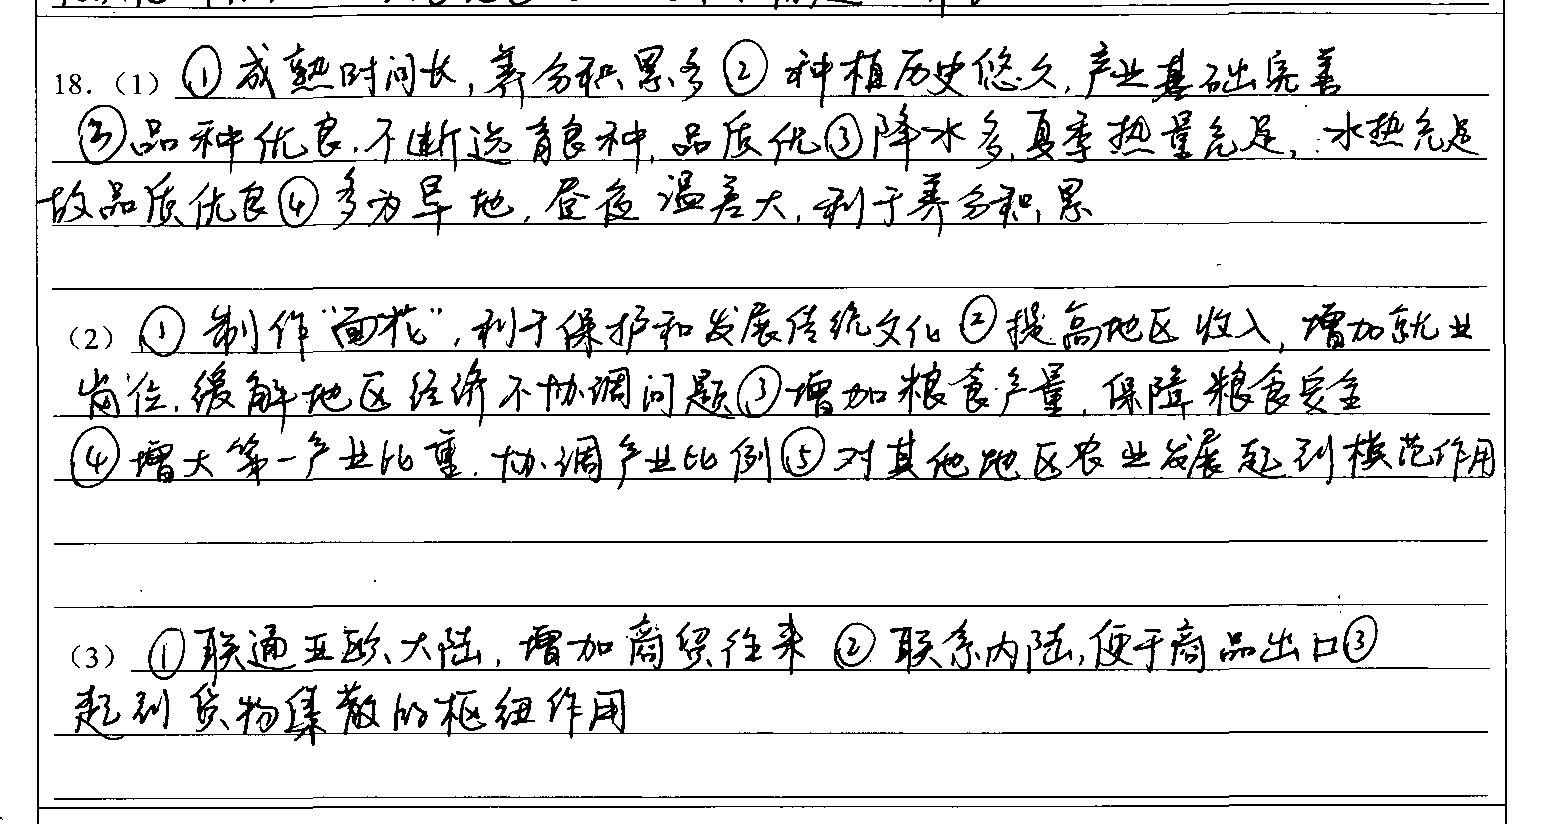 18.（1）①成熟时间长,养分积累多②种植历史悠久,产业基础完善
③品种优良.不断选育良种,品质优③降水多,夏季热量充足,水热充足
故品质优良④多为旱地,昼夜温差大,利于养分积累
（2）①制作“面花”,利于保护和发展传统文化②提高地区收入,增加就业
岗位,缓解地区经济不协调问题③增加粮食产量,保障粮食安全
④增大第一产业比重.协调产业比例⑤对其他地区农业发展起到模范作用
（3）①联通亚欧大陆,增加商贸往来②联系内陆,便于商品出口③
起到货物集散的枢纽作用